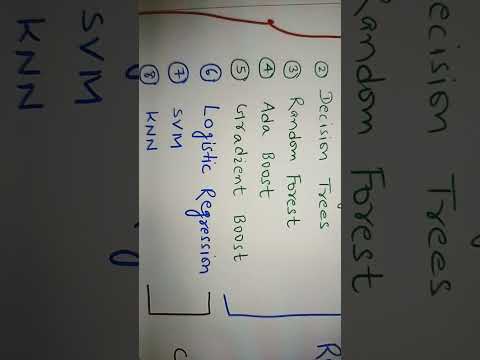 ② Decision Trees
③ Random Forest
④ Ada Boost
⑤ Gradient Boost
⑥ Logistic Regression
⑦ SVM
⑧ KNN
ecision Trees
andom Forest
SVM
KNN